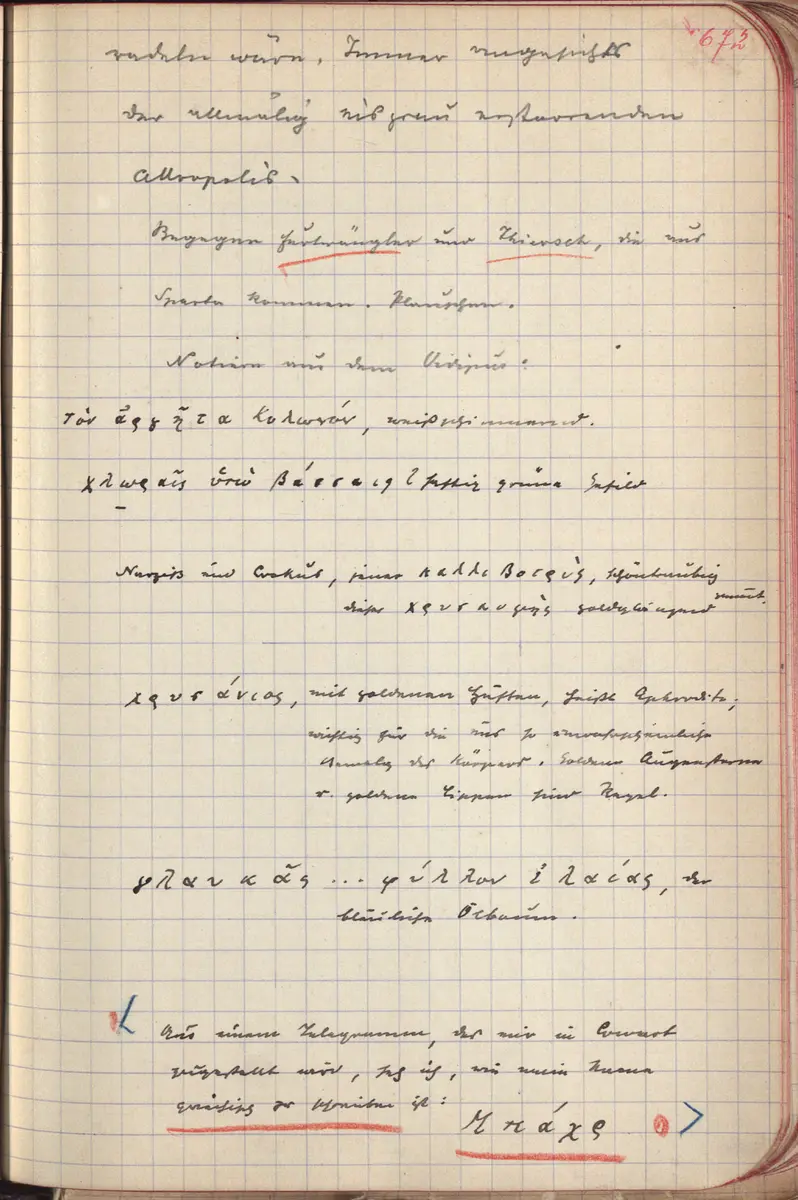 673
radeln wäre. Immer angesichts
der allmälig eisgrau erstarrenden
Akropolis.
Begegnen Furtwängler und Thiersch, die aus
Sparta kommen. Plauschen.
Notieren aus dem Oidipus:
τὸν ἀργῆτα Κολωνόν, weißschimmernd.
χλωραῖς ὑπὸ βάσσαις saftig grüne Gefild
Narziß und Crokus, jener καλλιβοτρυς, schöntraubig
dieser χρυσαυγὴς goldglänzend genannt.
χρυσάνιος, mit goldenen Hüften, heißt Aphrodite;
wichtig für die uns so
Bemalg des Körpers. Goldene Augensterne
u. goldene Lippen sind Regel.
γλαυκᾶς ... φύλλον ἐλαίας, der
bläuliche Ölbaum.
Aus einem Telegramm, das mir in Couvert
zugestellt wird, seh ich, wie mein Name
griechisch zu schreiben ist:
Μπάχρ